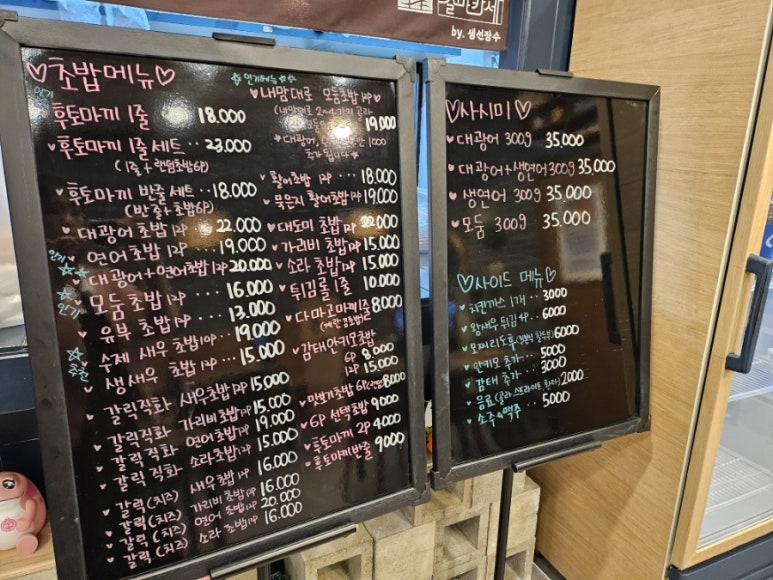 by. 생선장수
♡초밥메뉴♡
인기
후토마끼 1줄 18.000
♥후토마끼 1줄 세트 ·· 23.000
(1줄 + 랜덤초밥6P)
♥후토마끼 반줄 세트 ·· 18.000
(반줄+초밥6P)
♥대광어 초밥 12P ·· 22.000
♥연어 초밥 12P ···· 19.000
인기
♥대광어+연어초밥 12P 20.000
♥모둠 초밥 12P ··· 16.000
인기
♥유부 초밥 12P ··· 13.000
♥수제 새우 초밥 10P ·· 19.000
추천
♥생새우 초밥 12P ·· 15.000
♥갈릭직화 새우초밥 12P 15.000
♥갈릭직화 가리비초밥 12P 15.000
♥갈릭직화 연어초밥 12P 19.000
♥갈릭 직화 소라초밥 12P 15.000
♥갈릭(치즈) 새우초밥 12P 16.000
♥갈릭(치즈) 가리비초밥 12P 16.000
♥갈릭(치즈) 연어 초밥 12P 20.000
♥갈릭(치즈) 소라 초밥 12P 16.000
☆인기메뉴☆
♥내맘대로 모둠초밥 12P♥
19.000
1000
추가됩니다
♥활어초밥 12P ·· 18.000
♥묵은지 활어초밥 12P 19.000
♥대도미 초밥 12P 22.000
♥가리비 초밥 12P 15.000
♥소라 초밥 12P 15.000
♥튀김롤 1줄 10.000
♥다마고마끼 1줄 8000
♥감태안키모초밥
6P 8.000
12P 15.000
6P 8000
♥6P 선택초밥 9000
♥후토마끼 2P 4000
♥후토마끼반줄 9000
♡사시미♡
♥대광어 300g 35,000
♥대광어+생연어 300g 35,000
♥생연어 300g 35,000
♥모둠 300g 35,000
♡사이드 메뉴♡
♥치킨까스 1개 ·· 3000
♥왕새우 튀김 4P ·· 6000
6000
♥안키모 추가 ·· 5000
♥감태 추가 ··· 3000
♥음료(콜라,스프라이트,환타) 2000
♥소주&맥주 ·· 5000